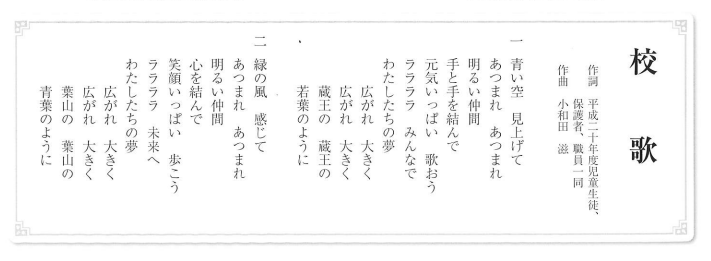 校歌
作詞 平成二十年度児童生徒、
保護者、職員一同
作曲 小和田 滋
一 青い空 見上げて
あつまれ あつまれ
明るい仲間
手と手を結んで
元気いっぱい 歌おう
ラララララ みんなで
わたしたちの夢
広がれ 大きく
広がれ 大きく
蔵王の 蔵王の
若葉のように
二 緑の風 感じて
あつまれ あつまれ
明るい仲間
心を結んで
笑顔いっぱい 歩こう
ラララララ 未来へ
わたしたちの夢
広がれ 大きく
広がれ 大きく
葉山の 葉山の
青葉のように